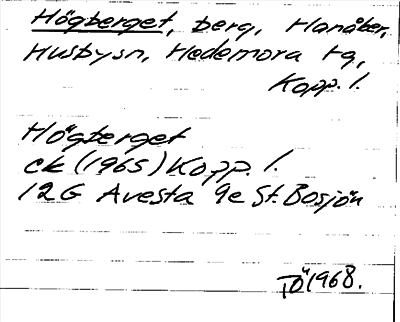 Högberget, berg, Hanåber,
Husbysn, Hedemora tg,
Kopp. l.
Högberget
ck (1965) Kopp. l.
12G Avesta 9e St. Bosjön
TÖ 1968.